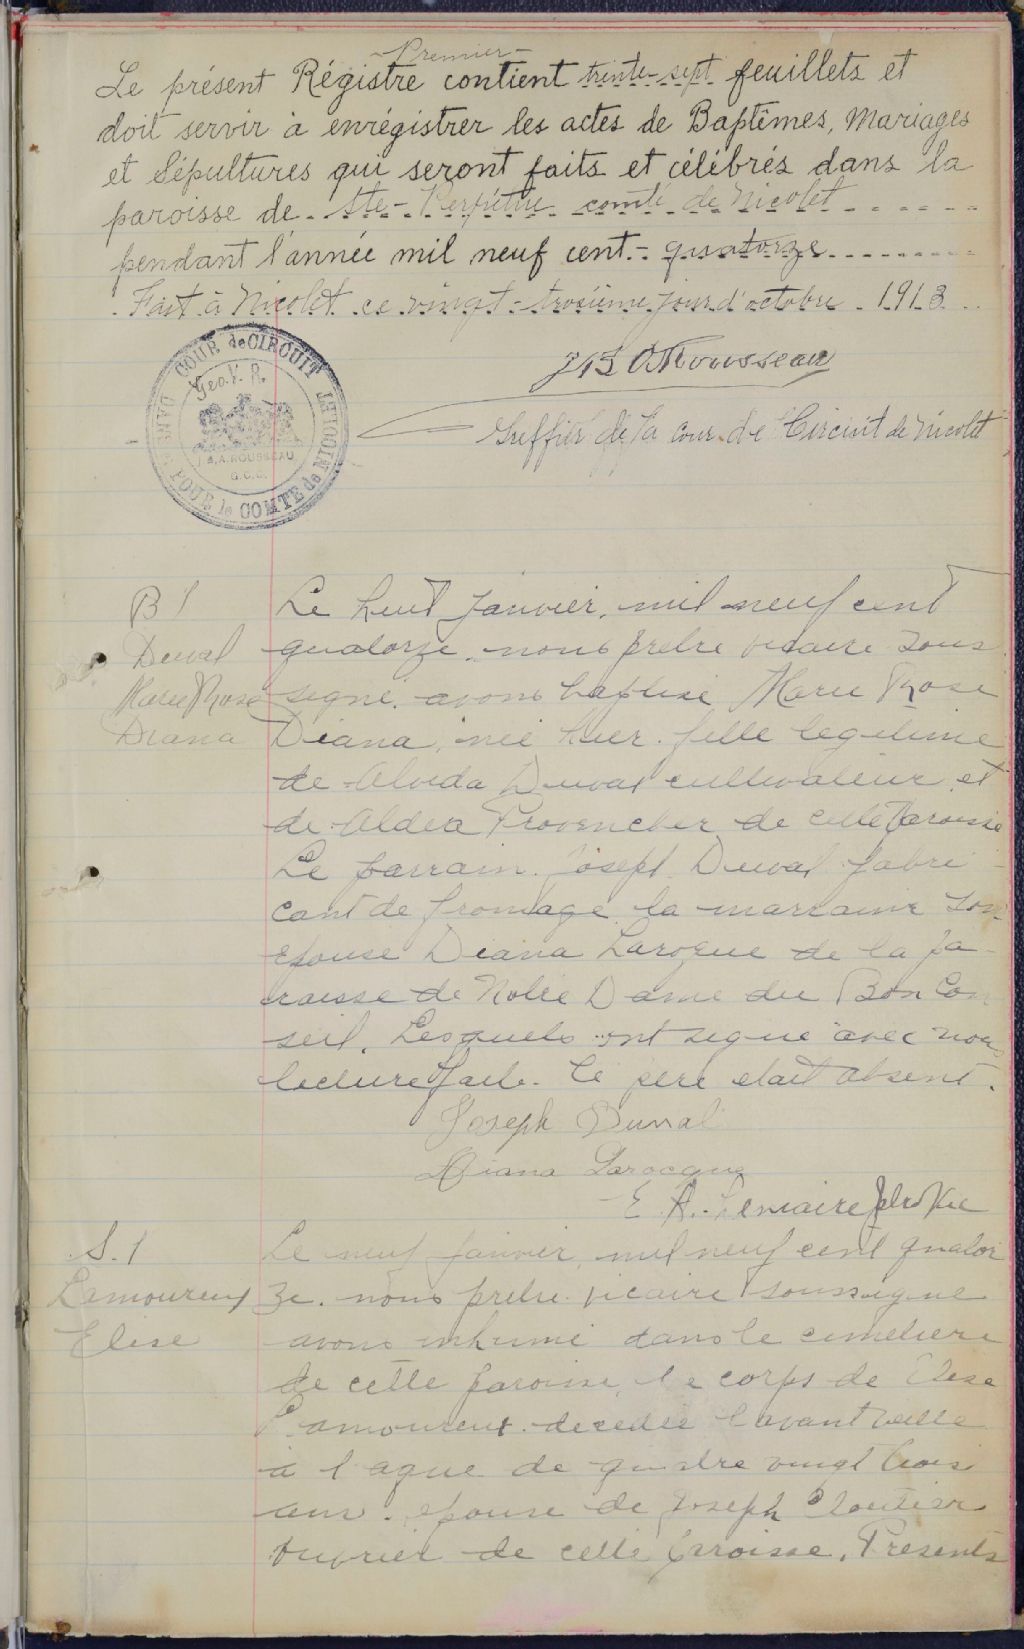 - Premier -
Le présent Régistre contient trente-sept feuillets et
doit servir à enrégistrer les actes de Baptêmes, Mariages
et Sépultures qui seront faits et célébrés dans la
paroisse de Ste-Perpétue comté de Nicolet
pendant l'année mil neuf cent - quatorze
Fait à Nicolet ce vingt-troisième jour d'octobre 1913
Rousseau
Greffier de la Cour de Circuit de Nicolet
COUR de CIRCUIT
DANS & POUR le COMTE de NICOLET
Geo. V. R.
J.B.A. ROUSSEAU
G.C.C.
B 1
Duval
Marie Rose
Diana
Le huit janvier, mil neuf cent
quatorze, nous prêtre vicaire sous
signé, avons baptisé Marie Rose
Diana, née hier, fille légitime
de Alvida Duval cultivateur et
de Aldea Provencher de cette paroisse
Le parrain Joseph Duval fabri
cant de fromage la marraine son
epouse Diana Larocque de la pa
roisse de Notre Dame du Bon Con
seil. Lesquels ont signé avec nous
lecture faite. Le père etait absent.
Joseph Duval
Diana Larocque
E. A. Lemaire Ptre Vic
S. 1
Lamoureux
Elise
Le neuf janvier, mil neuf cent quator
ze, nous prêtre vicaire soussigné
avons inhumé dans le cimetiere
de cette paroisse, le corps de Elise
Lamoureux decedée l'avant veille
a l'ague de quatre vingt trois
ans, epouse de Joseph Cloutier
ouvrier de cette paroisse. Présents